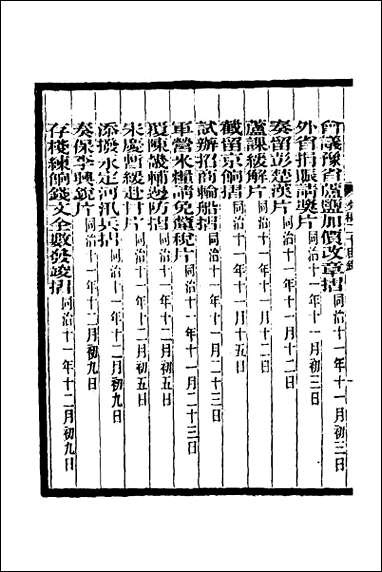 議豫省蘆鹽加價改章摺同治十一年十一月初三日
外省捐賑請獎片同治十一年十一月初三日
奏留彭楚漢片同治十一年十一月十二日
蘆課緩解片同治十一年十一月十二日
截留京餉摺同治十一年十一月十五日
試辦招商輪船摺同治十一年十一月二十三日
軍營米糧請免釐稅片同治十一年十一月二十三日
覆陳畿輔邊防摺同治十一年十二月初五日
朱慶暫緩赴甘片同治十一年十二月初五日
添撥永定河汛兵摺同治十一年十二月初九日
奏保李興銳片同治十一年十二月初九日
存棧練餉錢文全數發竣摺同治十一年十二月初九日